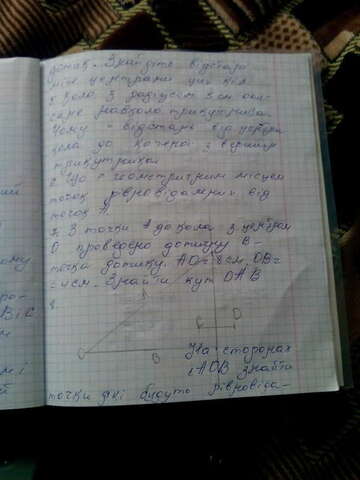 дотик. Знайдіть відста
між центрами цих кіл.
Коло з радіусом 8 см опи-
сане навколо трикутника.
Чому = відстань від центра
кола до кожної з вершин
трикутника
6. Що є геометричним місцем
точок рівновіддалених від
точок А.
З точки А до кола з центром
О проведено дотичну В -
точка дотику. АО = 8 см, ОВ =
= 4 см. Знайти кут ОАВ
8.
С D
О В
На сторонах
∠АОВ знайти
точки які будуть рівновідда-